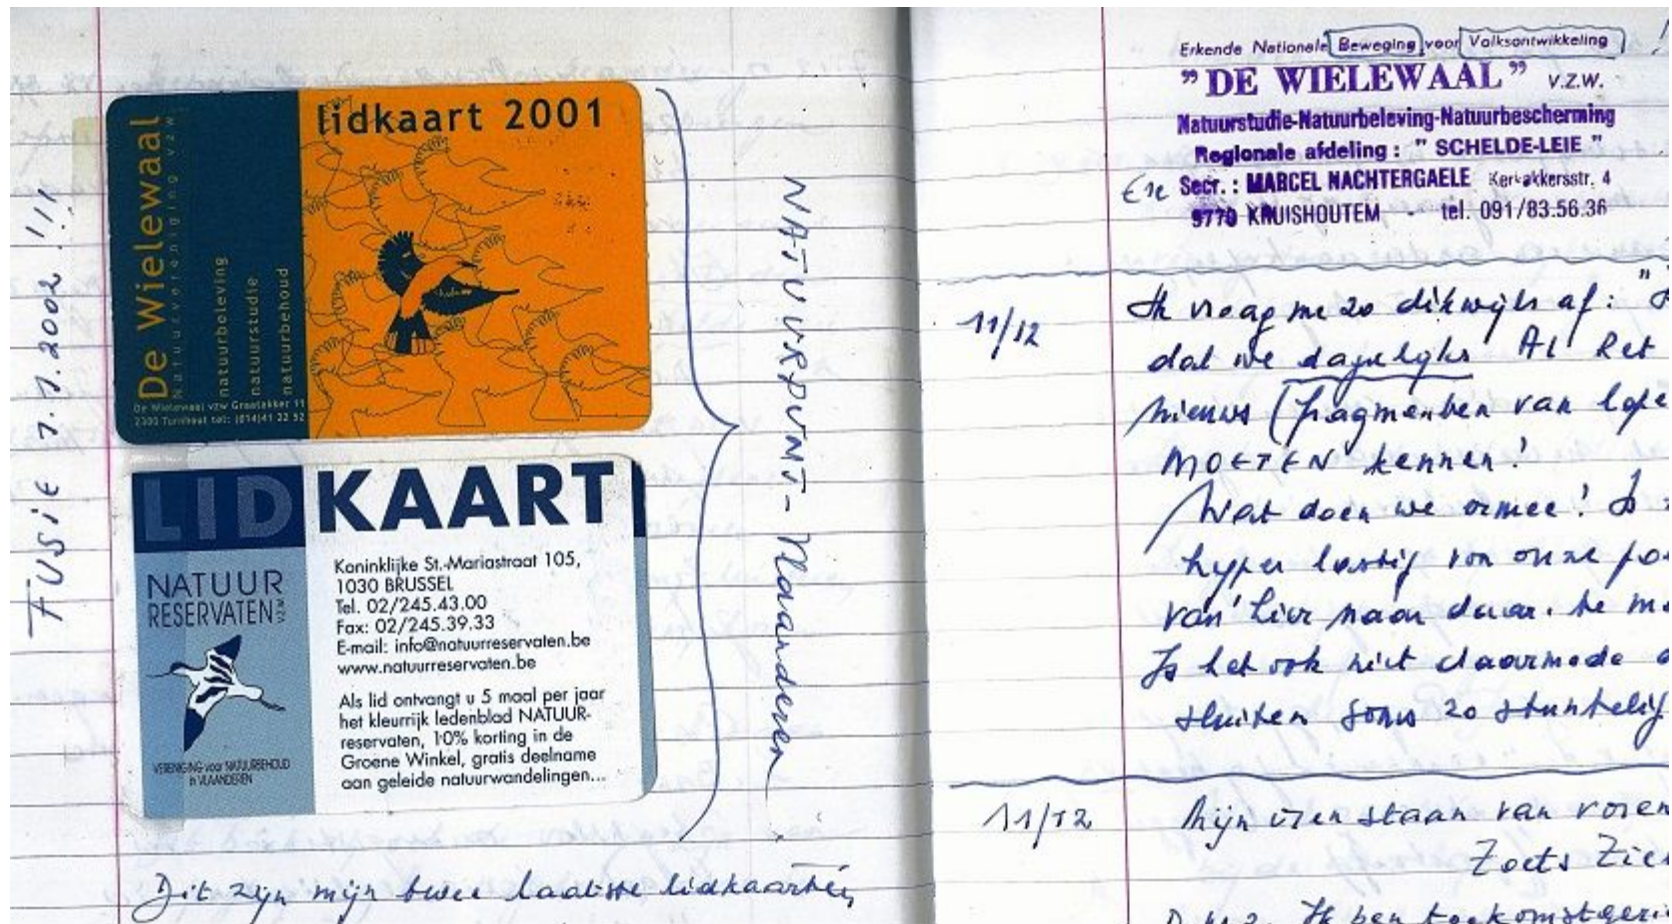 FUSIE 1.1.2002 !!!
lidkaart 2001
De Wielewaal
Natuurvereniging vzw
natuurbeleving
natuurstudie
natuurbehoud
De Wielewaal vzw Graatakker 11
2300 Turnhout tel: (014)41 22 52
LIDKAART
NATUUR
RESERVATEN VZW
VERENIGING voor NATUURBEHOUD
in VLAANDEREN
Koninklijke St.-Mariastraat 105,
1030 BRUSSEL
Tel. 02/245.43.00
Fax: 02/245.39.33
E-mail: info@natuurreservaten.be
www.natuurreservaten.be
Als lid ontvangt u 5 maal per jaar
het kleurrijk ledenblad NATUUR-
reservaten, 10% korting in de
Groene Winkel, gratis deelname
aan geleide natuurwandelingen...
NATUURPUNT - Vlaanderen
Dit zijn mijn twee laatste lidkaarten
Erkende Nationale Beweging voor Volksontwikkeling
"DE WIELEWAAL" V.Z.W.
Natuurstudie-Natuurbeleving-Natuurbescherming
Regionale afdeling : " SCHELDE-LEIE "
Secr. : MARCEL NACHTERGAELE Kerkakkersstr. 4
9770 KRUISHOUTEM - tel. 091/83.56.36
11/12
Ik vraag me zo dikwijls af : "
dat we dagelijks AL het
nieuws (fragmenten van
MOETEN kennen!
Wat doen we ermee! Is
hyper lastig van onze
van hier naar daar. te
Is het ook niet daarmede
sluiten soms zo stuntelig
11/12
Mijn uren staan van voren
Zoets
Ik ben